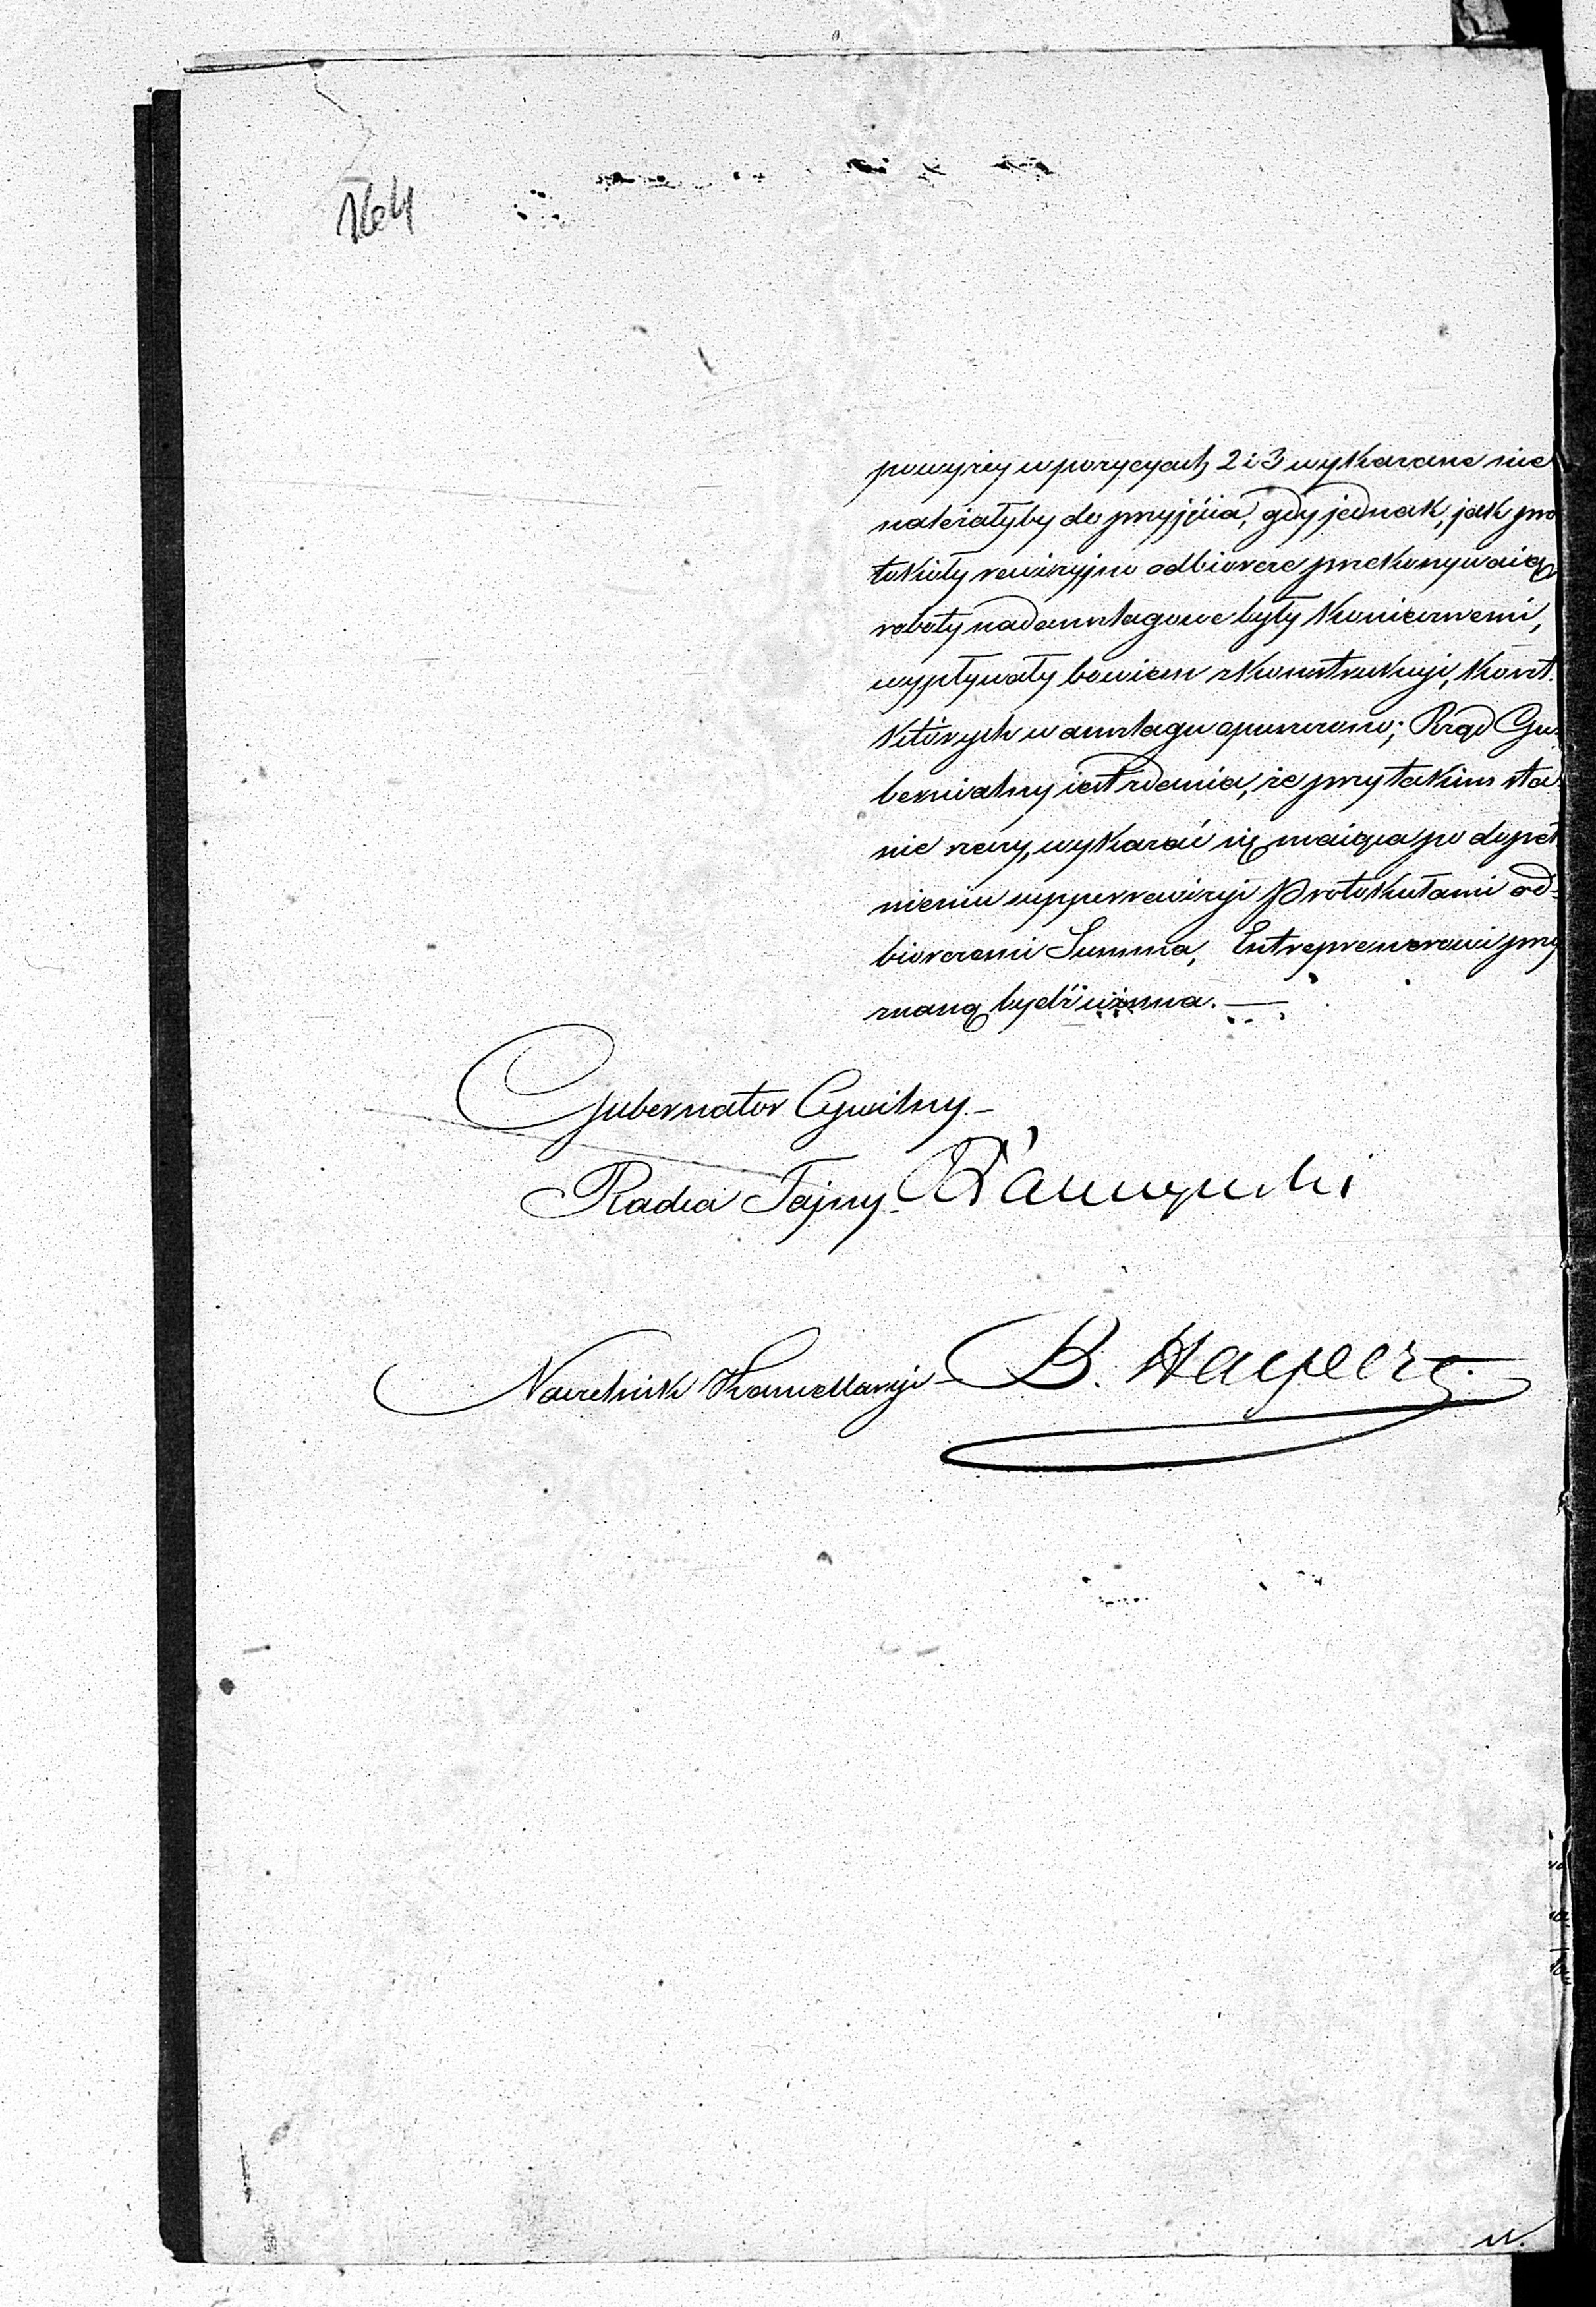 164
powyżey w pozycyach 2 i 3 wykazane nie
należałyby do przyjęcia, gdy jednak, jak pro
tokóły rewizyjno odbiorcze przekonywaią
roboty nadanszlagowe były koniecznemi,
wypływały bowiem z konstrukcyi, koszt
których w anszlagu opuszczono; Rząd Gu-
bernialny iest zdania, że przy takim sta-
nie rzeczy, wykazać się maiąca po dopeł
nieniu supperrewizyi Protokułami od-
biorczemi Summa, Entreprenerowi przy
znaną bydź winna. —
Gubernator Cywilny. —
Radca Tajny
Naczelnik Kancellaryi B.